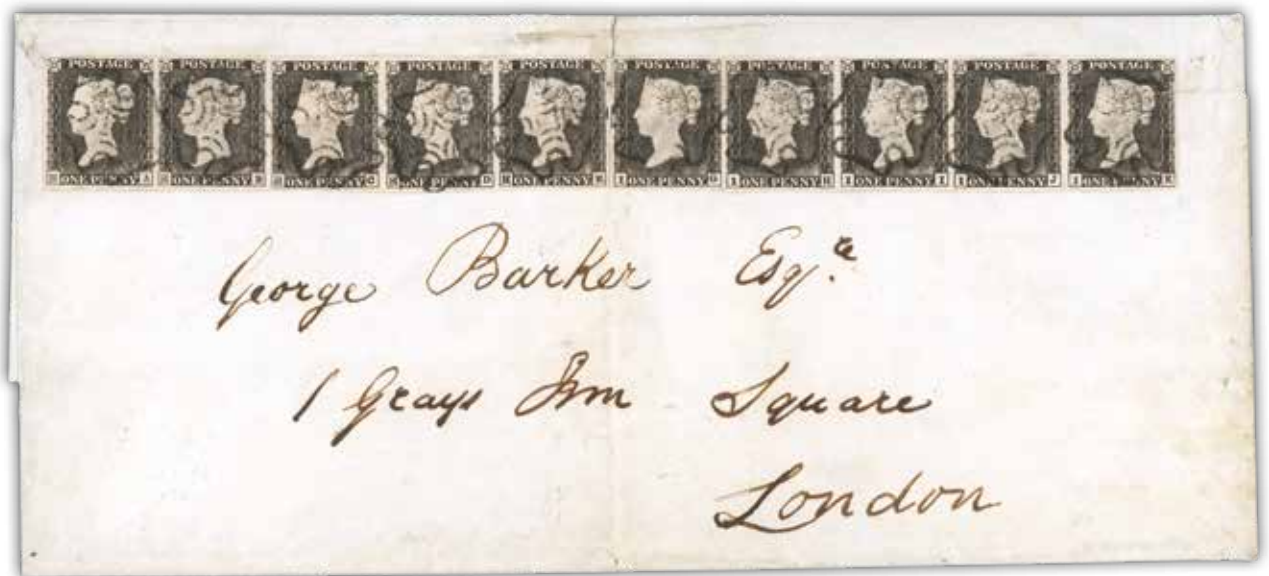 POSTAGE POSTAGE POSTAGE POSTAGE POSTAGE POSTAGE POSTAGE POSTAGE POSTAGE POSTAGE
A ONE PENNY B ONE PENNY C ONE PENNY D ONE PENNY E ONE PENNY I ONE PENNY G I ONE PENNY H I ONE PENNY I I ONE PENNY J I ONE PENNY K
George Barker Esqre
1 Grays Inn Square
London